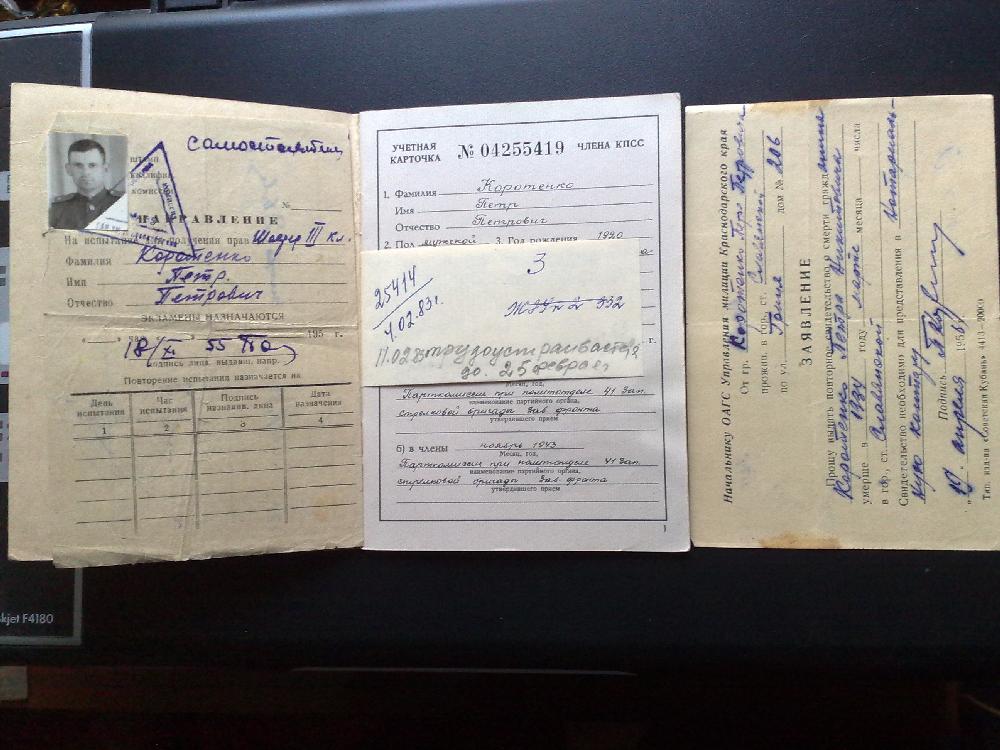 самостоятел
НАПРАВЛЕНИЕ
№
На испытание для получения прав Шофер III кл.
Фамилия Коротенко
Имя Петр
Отчество Петрович
ЭКЗАМЕНЫ НАЗНАЧАЮТСЯ
195 г.
18/XI 55
подпись лица, выдавш. напр.
Повторение испытания назначается на
День испытания Час испытания Подпись назначив. лица Дата назначения
1 2 3 4
УЧЕТНАЯ КАРТОЧКА № 04255419 ЧЛЕНА КПСС
1. Фамилия Коротенко
Имя Петр
Отчество Петрович
2. Пол мужской 3. Год рождения 1920
3
25414
4.02.83г.
332
трудоустраивается
до 25 феврал
Месяц, год,
Парткомиссия при политотделе 41 Зап.
наименование партийного органа,
стрелковой бригады Зап. фронта
утвердившего прием
б) в члены ноябрь 1943
Месяц, год,
Парткомиссия при политотделе 41 Зап.
наименование партийного органа,
стрелковой бригады Зап. фронта
утвердившего прием
1
Начальнику ОАГС Управления милиции Краснодарского края
От гр. Коротенко Петро Петрович
прожив. в гор., ст. Славянской
по ул. дом № 206
ЗАЯВЛЕНИЕ
Прошу выдать повторное свидетельство о смерти гражданина
Коротенко Петра Никитовича
умерше в году марте месяца числа
в гор., ст. Славянской
Свидетельство необходимо для представления в Нотариаль-
ную контору
Подпись
апреля 1956 г.
Тип. изд-ва «Советская Кубань» 4413—2000
skjet F4180